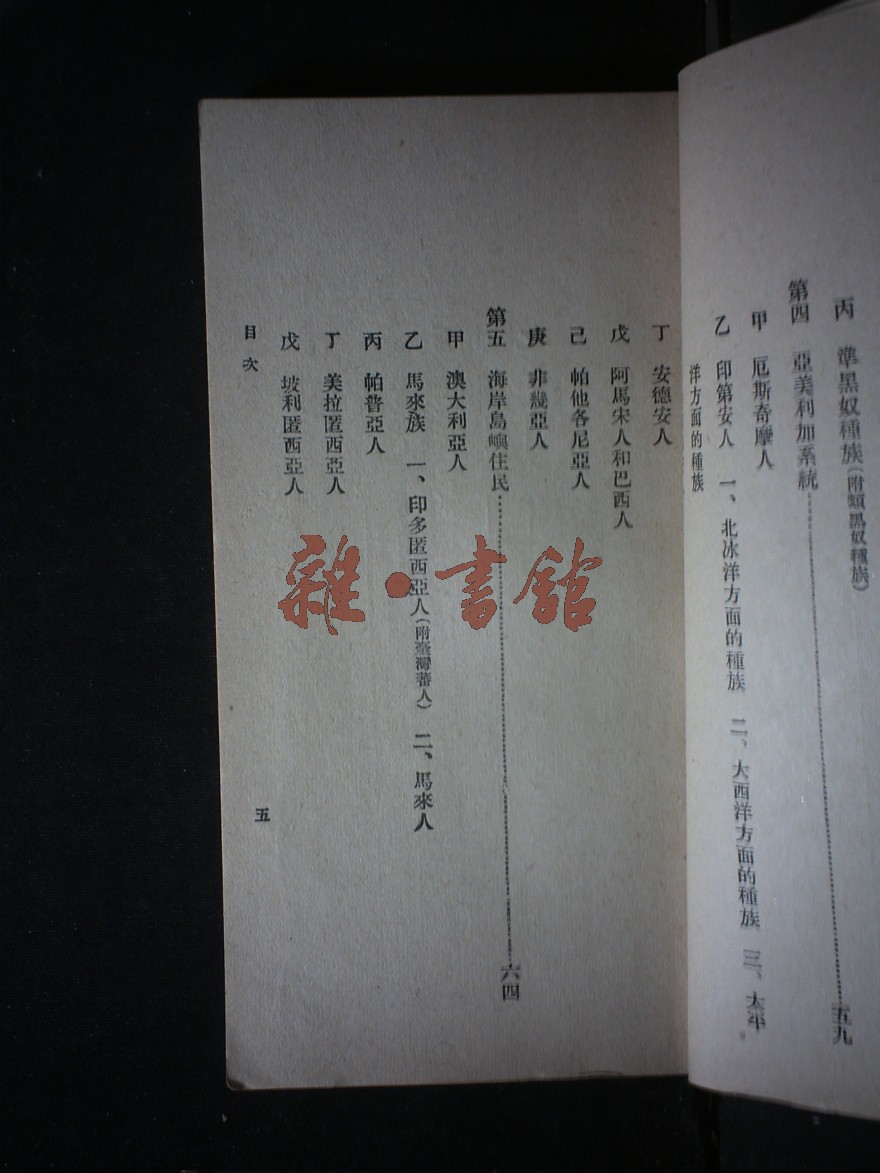 丙　準黑奴種族(附類黑奴種族)
第四　亞美利加系統……五九
甲　厄斯奇摩人
乙　印第安人　一、北冰洋方面的種族　二、大西洋方面的種族　三、太平
洋方面的種族
丁　安德安人
戊　阿馬宋人和巴西人
己　帕他各尼亞人
庚　非幾亞人
第五　海岸島嶼住民……六四
甲　澳大利亞人
乙　馬來族　一、印多匿西亞人(附臺灣蕃人)　二、馬來人
丙　帕普亞人
丁　美拉匿西亞人
戊　坡利匿西亞人
目次
五
雜·書館